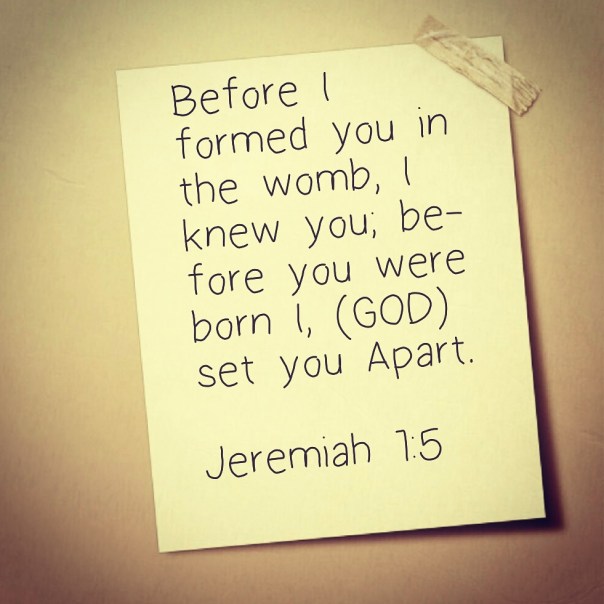 Before I
formed you in
the womb, I
knew you; be-
fore you were
born I, (GOD)
set you Apart.
Jeremiah 1:5